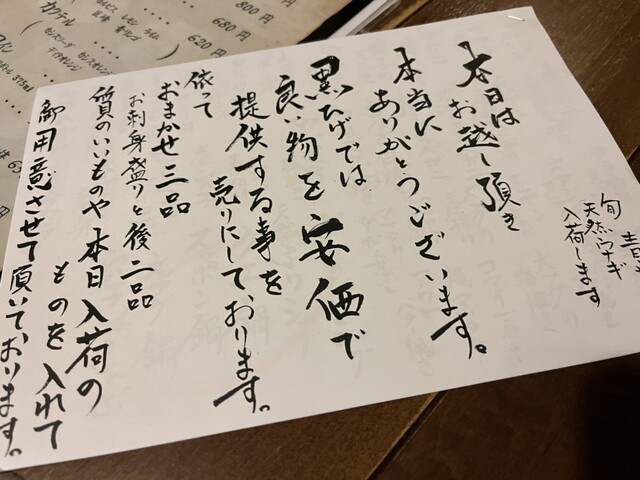 旬
天然ウナギ
入荷します
本日は
お越し頂き
本当に
ありがとうございます。
黒ひげでは
良い物を安価で
提供する事を
売りにしております。
依って
おまかせ三品
お刺身盛りと後二品
質のいいものや本日入荷の
ものを入れて
御用意させて頂いております。
カクテル
800円
680円
620円